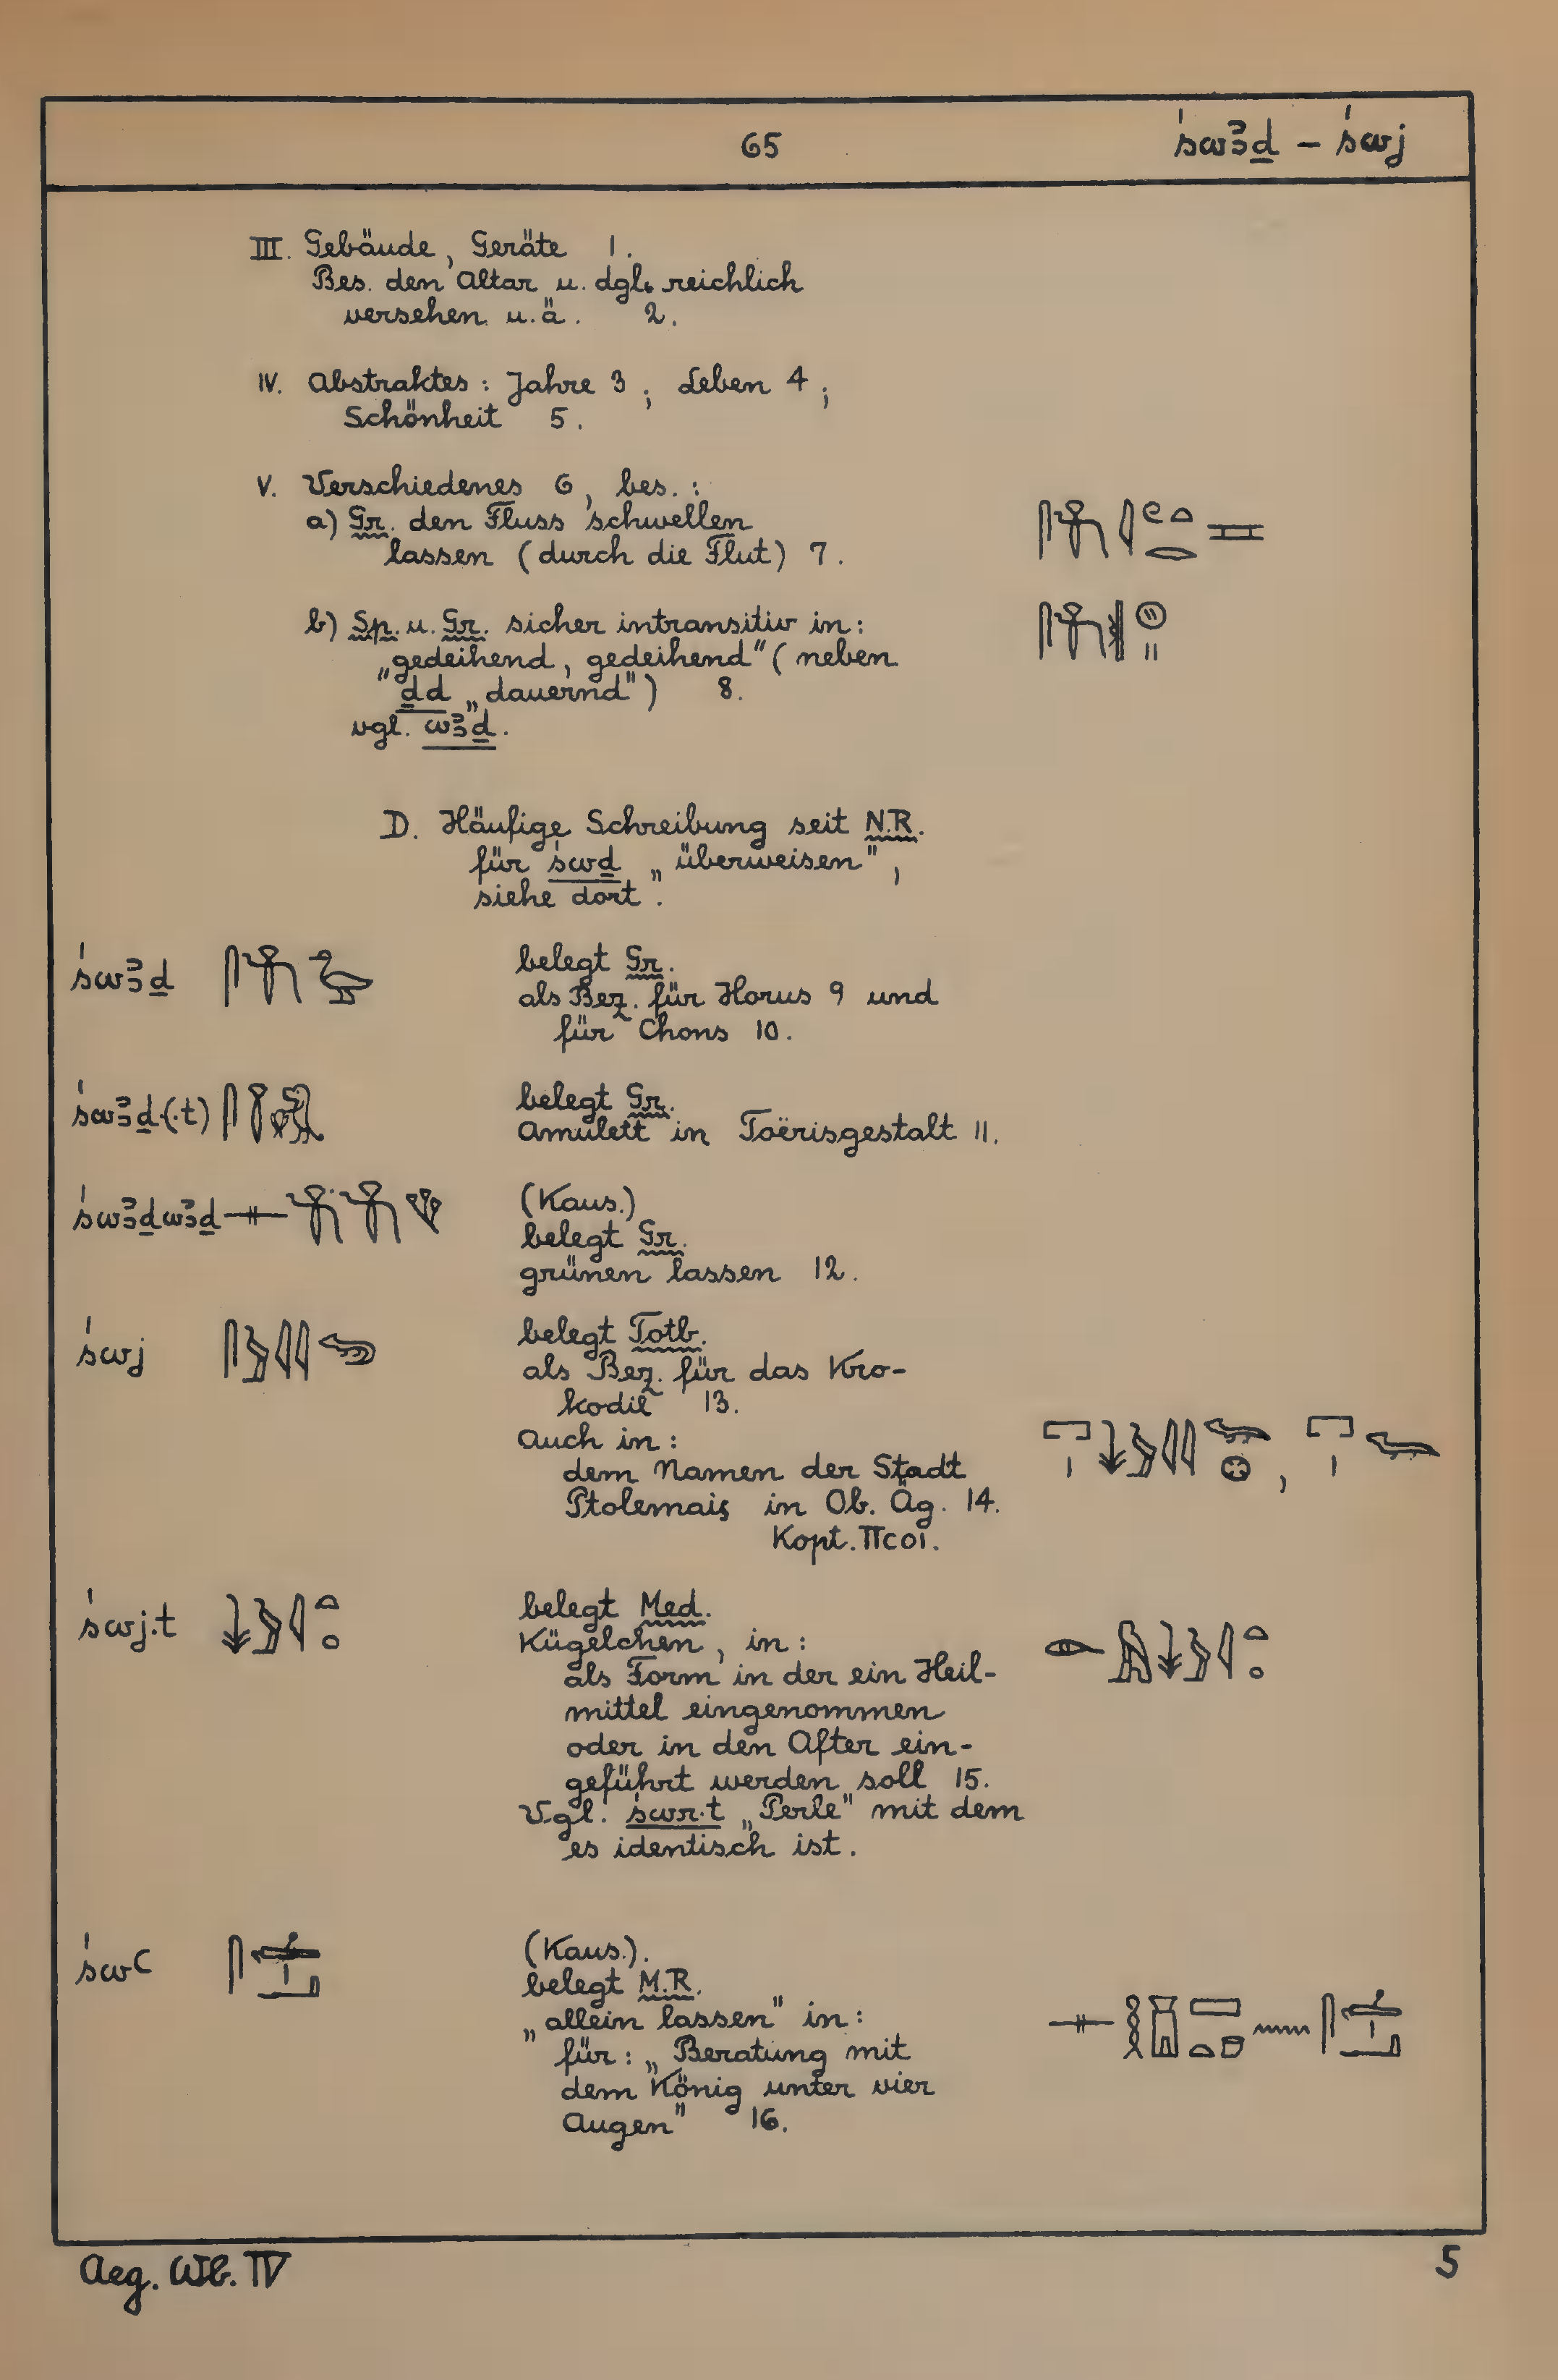 65
śwꜣḏ – śwj
III. Gebäude, Geräte 1.
Bes. den Altar u. dgl. reichlich
versehen u.ä. 2.
IV. Abstraktes: Jahre 3; Leben 4;
Schönheit 5.
V. Verschiedenes 6, bes.:
a) Gr. den Fluss schwellen
lassen (durch die Flut) 7.
b) Sp. u. Gr. sicher intransitiv in:
„gedeihend, gedeihend" (neben
ḏd „dauernd") 8.
vgl. wꜣḏ.
D. Häufige Schreibung seit N.R.
für śwḏ „überweisen",
siehe dort.
śwꜣḏ
belegt Gr.
als Bez. für Horus 9 und
für Chons 10.
śwꜣḏ(.t)
belegt Gr.
Amulett in Toërisgestalt 11.
śwꜣḏwꜣḏ
(Kaus.)
belegt Gr.
grünen lassen 12.
śwj
belegt Totb.
als Bez. für das Kro-
kodil 13.
Auch in:
dem Namen der Stadt
Ptolemais in Ob. Äg. 14.
Kopt. Ⲡⲥⲟⲓ.
śwj.t
belegt Med.
Kügelchen, in:
als Form in der ein Heil-
mittel eingenommen
oder in den After ein-
geführt werden soll 15.
Vgl. śwr.t „Perle" mit dem
es identisch ist.
śwꜥ
(Kaus.).
belegt M.R.
„allein lassen" in:
für: „Beratung mit
dem König unter vier
Augen" 16.
Aeg. Wb. IV
5